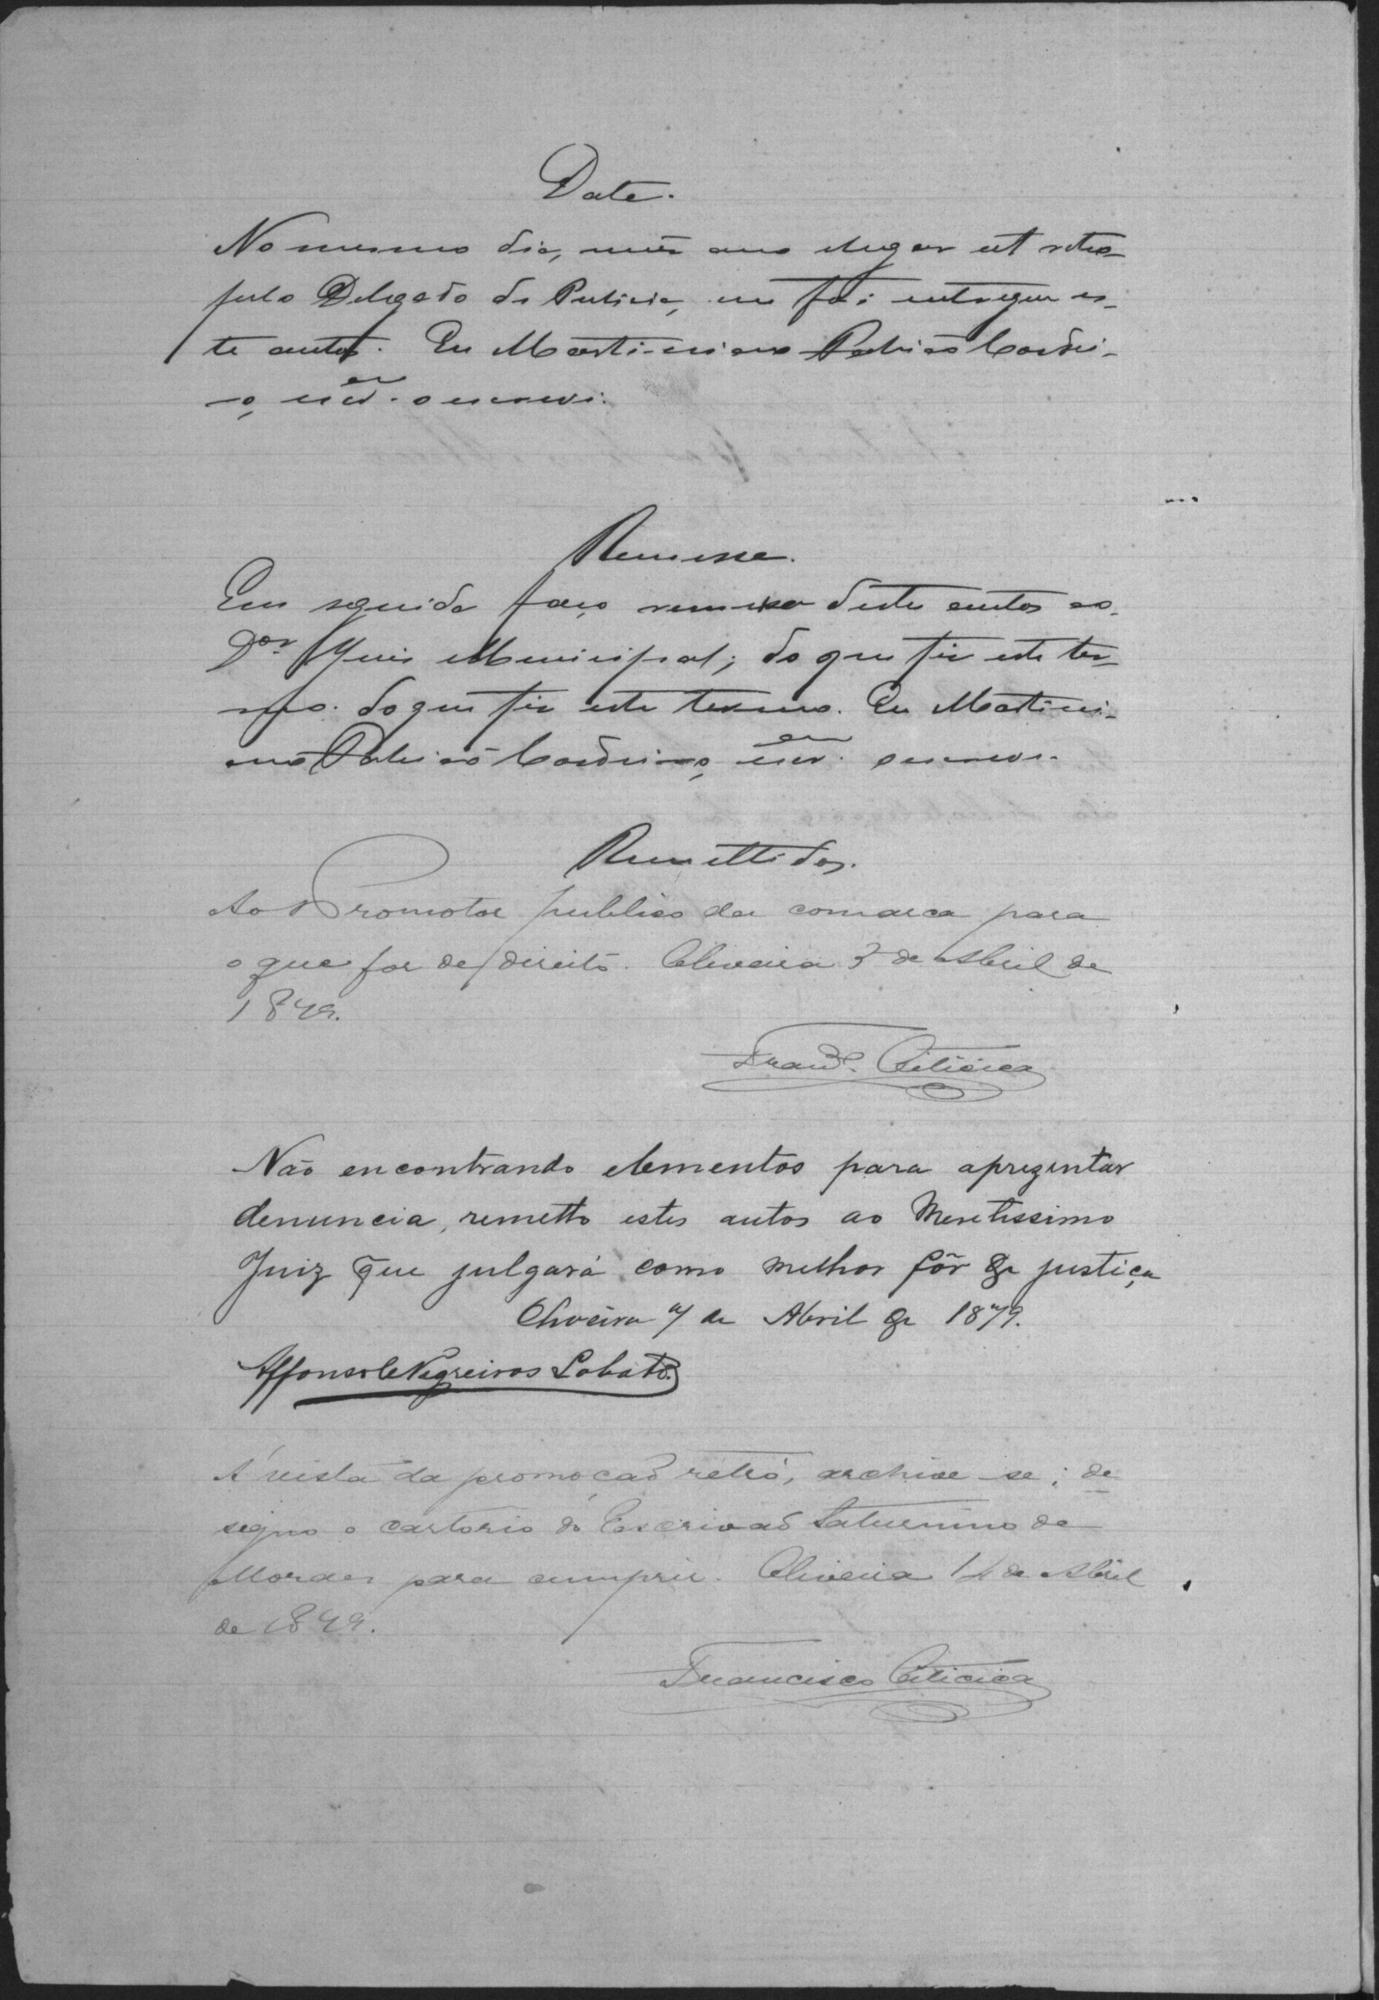 Data.
No mesmo dia, mes anno e lugar ut retro
pelo Delegado de Policia, me foi entregue es-
te autos. Eu Martiniano Cordei-
ro, escr.am o escrevi.
Remessa.
Em seguida faço remessa destes autos ao
Dor. Juis Municipal; do que fiz este ter-
mo. do que fiz este termo. Eu Martini-
ano Cordeiro, escr.am o escrevi.
Remettidos.
Ao Promotor publico da comarca para
o que for de direito. Oliveira 3 de Abril de
1879.
Franco.
Não encontrando elementos para aprezentar
denuncia, remetto estes autos ao Meretissimo
Juiz que julgará como melhor fôr de justiça
Oliveira 7 de Abril de 1879.
Affonso C Negreiros Lobato.
A' vista da promoção retró, archive-se; de
signo o cartorio do Escrivaõ Saturnino de
Moraes para cumprir. Oliveira 14 de Abril
de 1879.
Francisco